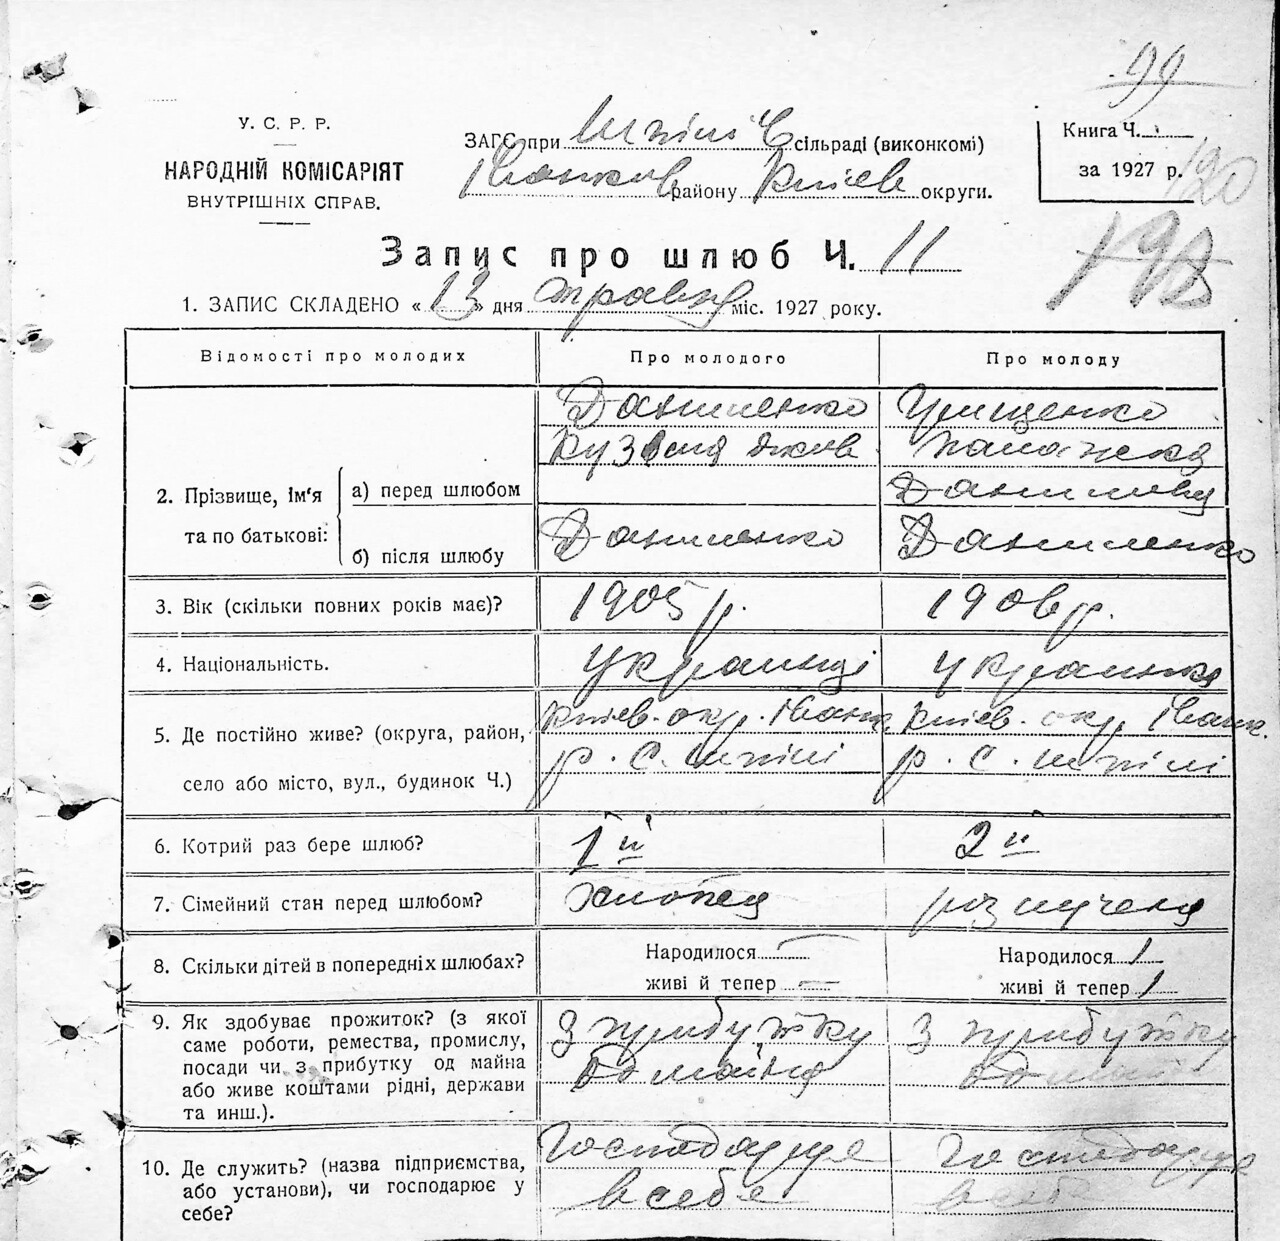 99
У. С. Р. Р.
НАРОДНІЙ КОМІСАРІЯТ
ВНУТРІШНІХ СПРАВ.
ЗАГС при Шпілів сільраді (виконкомі)
Іванков району Київ округи.
Книга Ч.
за 1927 р.
120
Запис про шлюб Ч. 11
1. ЗАПИС СКЛАДЕНО « 13 » дня травня міс. 1927 року.
Відомості про молодих
Про молодого
Про молоду
2. Прізвище, ім'я та по батькові:
а) перед шлюбом
Даниленко
Кузьма Яков
Грищенко
Палажка
Данилівна
б) після шлюбу
Даниленко
Даниленко
3. Вік (скільки повних років має)?
1905 р.
1906 р.
4. Національність.
українці
українка
5. Де постійно живе? (округа, район,
село або місто, вул., будинок Ч.)
Київ. окр. Іванк.
р. С. Шпілі
Київ. окр. Іванк.
р. с. Шпілі
6. Котрий раз бере шлюб?
1й
2й
7. Сімейний стан перед шлюбом?
хлопец
розлучена
8. Скільки дітей в попередніх шлюбах?
Народилося —
живі й тепер —
Народилося 1
живі й тепер 1
9. Як здобуває прожиток? (з якої
саме роботи, ремества, промислу,
посади чи з прибутку од майна
або живе коштами рідні, держави
та инш.).
З прибутку
од майна
З прибутку
од майна
10. Де служить? (назва підприємства,
або установи), чи господарює у
себе?
Господарує
в себе
Господарує
в себе